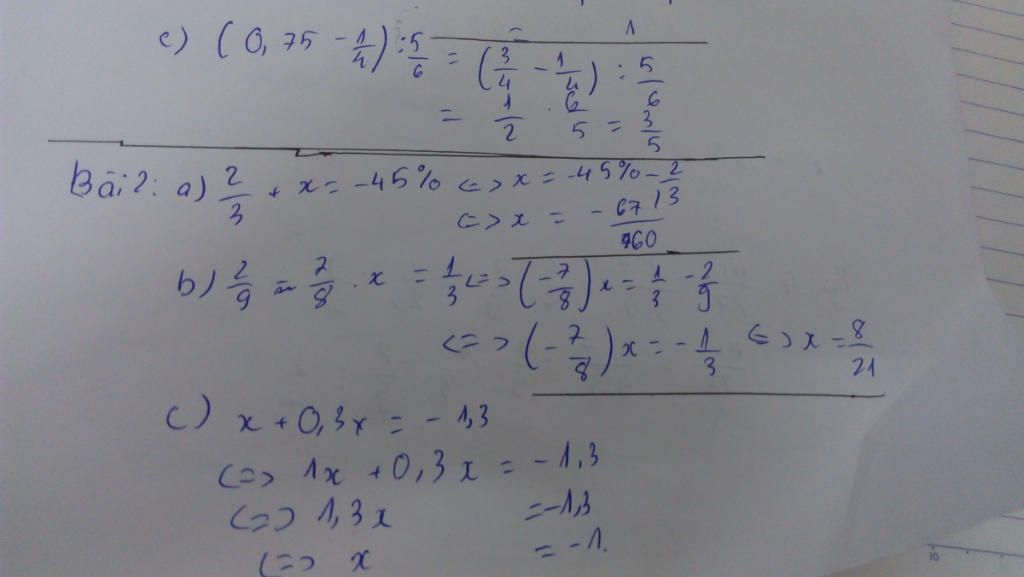 = 1
c) (0,75 - 1/4) : 5/6 = (3/4 - 1/4) : 5/6
= 1/2 . 6/5 = 3/5
Bài 2: a) 2/3 + x = -45% <=> x = -45% - 2/3
<=> x = -67/60
b) 2/9 - 7/8 . x = 1/3 <=> (-7/8)x = 1/3 - 2/9
<=> (-7/8)x = -1/3 <=> x = 8/21
c) x + 0,3x = -1,3
<=> 1x + 0,3x = -1,3
<=> 1,3x = -1,3
<=> x = -1.
10